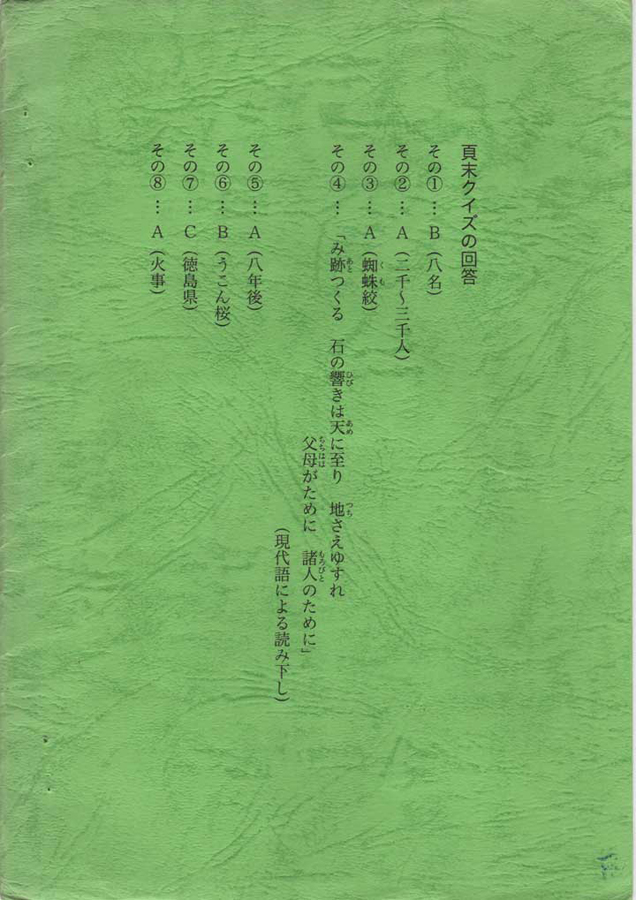 頁末クイズの回答
その①…B(八名)
その②…A(二千〜三千人)
その③…A(蜘蛛絞)
その④…「み跡つくる 石の響きは天に至り 地さえゆすれ
父母がために 諸人のために」
(現代語による読み下し)
その⑤…A(八年後)
その⑥…B(うこん桜)
その⑦…C(徳島県)
その⑧…A(火事)